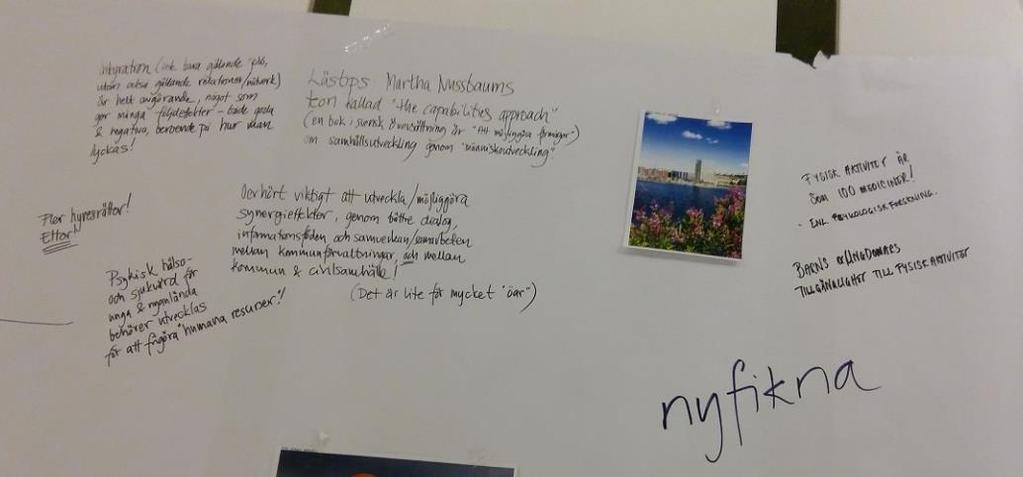 Integration (inte bara gällande jobb,
utan också gällande relationer/nätverk)
är helt avgörande, något som
ger många följdeffekter – både goda
& negativa, beroende på hur man
lyckas!
Lästips Martha Nussbaums
teori kallad "the capabilities approach"
(en bok i svensk översättning är "Att möjliggöra förmågor")
om samhällsutveckling genom "människoutveckling"
Fler hyresrätter!
Ettor!
Oerhört viktigt att utveckla/möjliggöra
synergieffekter, genom bättre dialog,
informationsflöden och samverkan/samarbeten
mellan kommunförvaltningar, och mellan
kommun & civilsamhälle!
(Det är lite för mycket "öar")
Psykisk hälso-
och sjukvård för
unga & nyanlända
behöver utvecklas
för att frigöra "humana resurser"!
FYSISK AKTIVITET ÄR
SOM 100 MEDICINER!
- ENL PSYKOLOGISK FORSKNING.
BARNS & UNGDOMARS
TILLGÄNGLIGHET TILL FYSISK AKTIVITET
nyfikna